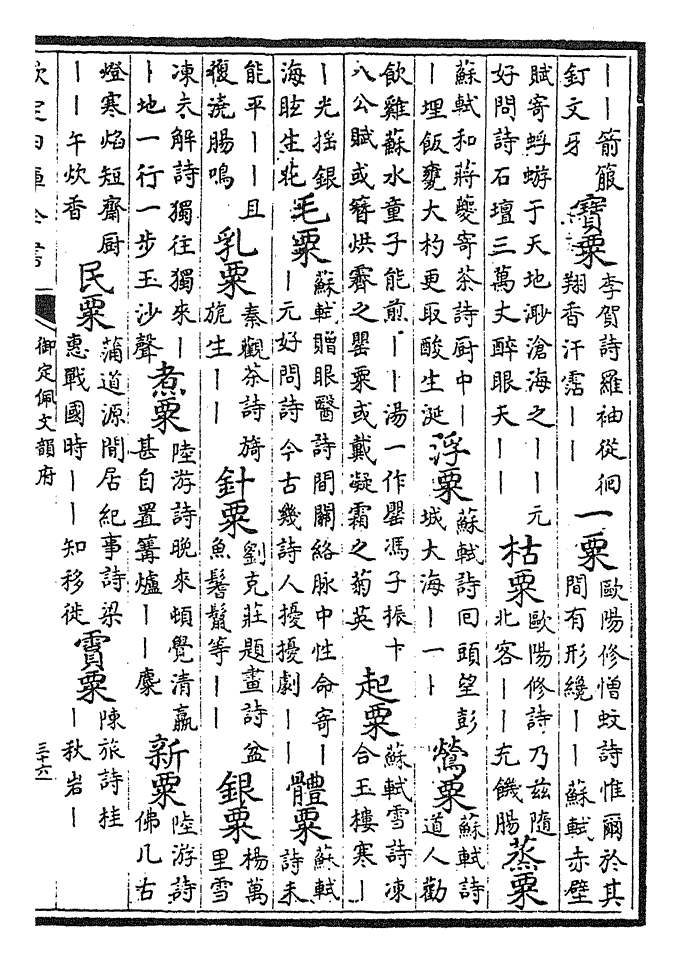 ｜｜箭箙釘文牙　寶粟　李賀詩羅袖從徊翔香汗霑｜｜　一粟　歐陽修憎蚊詩惟爾於其間有形纔｜｜蘇軾赤壁
賦寄蜉蝣于天地渺滄海之｜｜元好問詩石壇三萬丈醉眼天｜｜　枯粟　歐陽修詩乃兹隨北客｜｜充饑腸　蒸粟
蘇軾和蔣夔寄茶詩厨中｜｜埋飯甕大杓更取酸生涎　浮粟　蘇軾詩回頭望彭城大海｜一｜　鶯粟　蘇軾詩道人勸
飲雞蘇水童子能煎｜｜湯一作罌馮子振十八公賦或簪烘霽之罌粟或戴凝霜之菊英　起粟　蘇軾雪詩凍合玉樓寒｜
｜光摇銀海眩生花　毛粟　蘇軾贈眼醫詩間關絡脉中性命寄｜｜元好問詩今古幾詩人擾擾劇｜｜　體粟　蘇軾詩未
能平｜｜且復澆腸鳴　乳粟　秦觀茶詩旖旎生｜｜　針粟　劉克莊題畫詩盆魚鬐鬣等｜｜　銀粟　楊萬里雪
凍未解詩獨往獨來｜｜地一行一步玉沙聲　煮粟　陸游詩晚來頓覺清羸甚自置篝爐｜｜麋　新粟　陸游詩佛几古
燈寒焰短齋厨｜｜午炊香　民粟　蒲道源閒居紀事詩梁惠戰國時｜｜知移徙　霣粟　陳旅詩桂｜秋岩｜
欽定四庫全書
御定佩文韻府
三十六